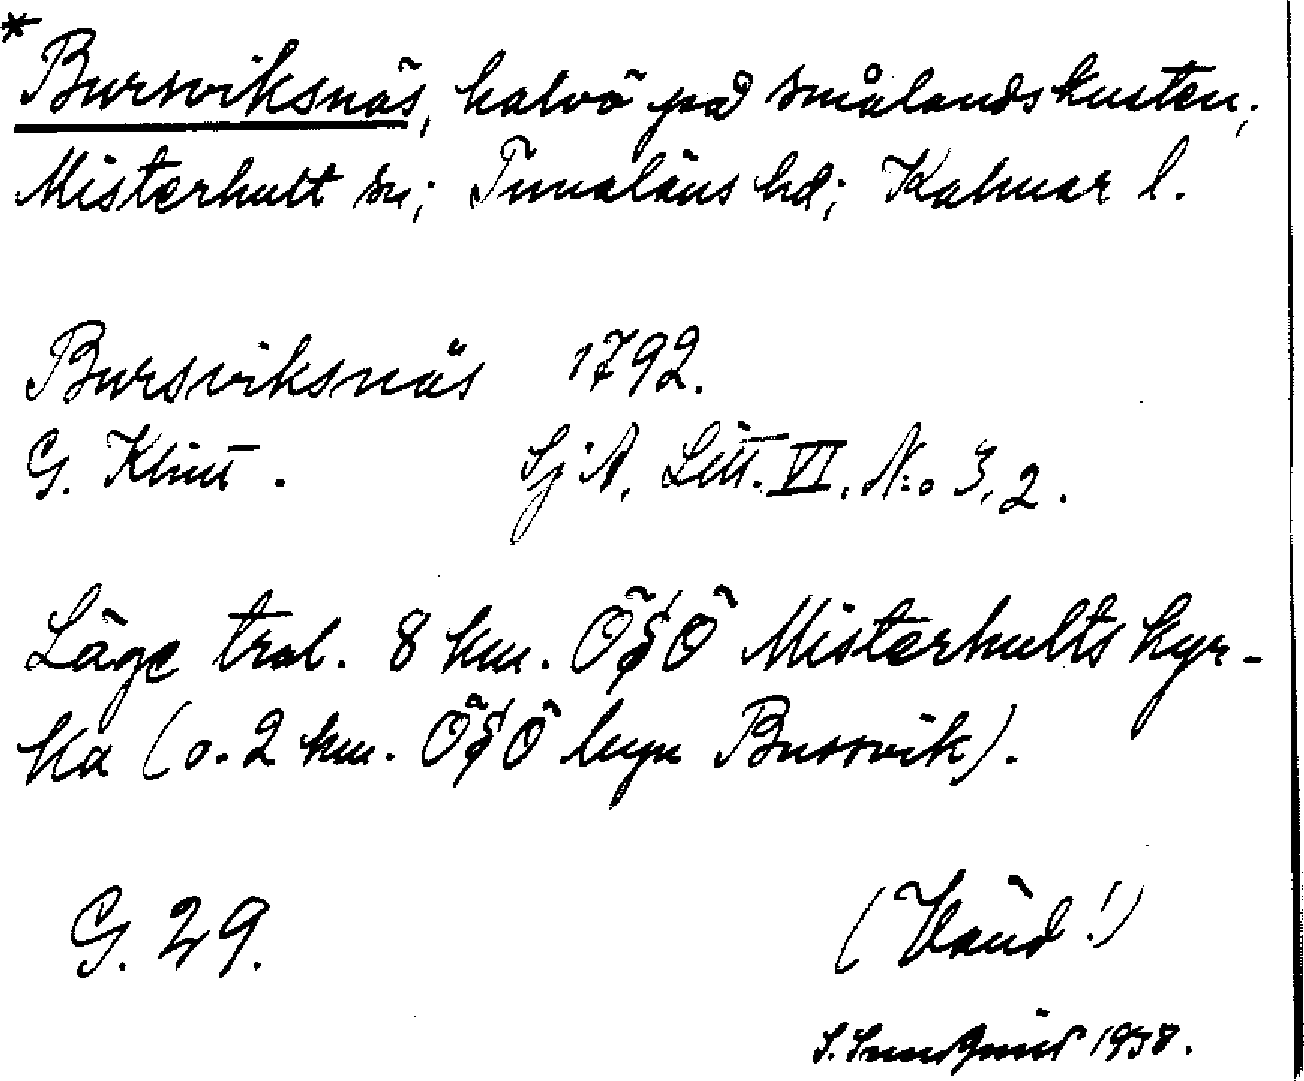 * Bursviksnäs, halvö på smålandskusten;
Misterhult sn; Tunaläns hd; Kalmar l.
Bursviksnäs 1792.
G. Klint. Sj A, Litt. VI. N:o 3, 2.
Läge tral. 8 km. ÖSÖ Misterhults kyr-
ka (o. 2 km. ÖSÖ byn Bussvik).
G. 29.
(Vänd!)
S. Sundqvist 1938.